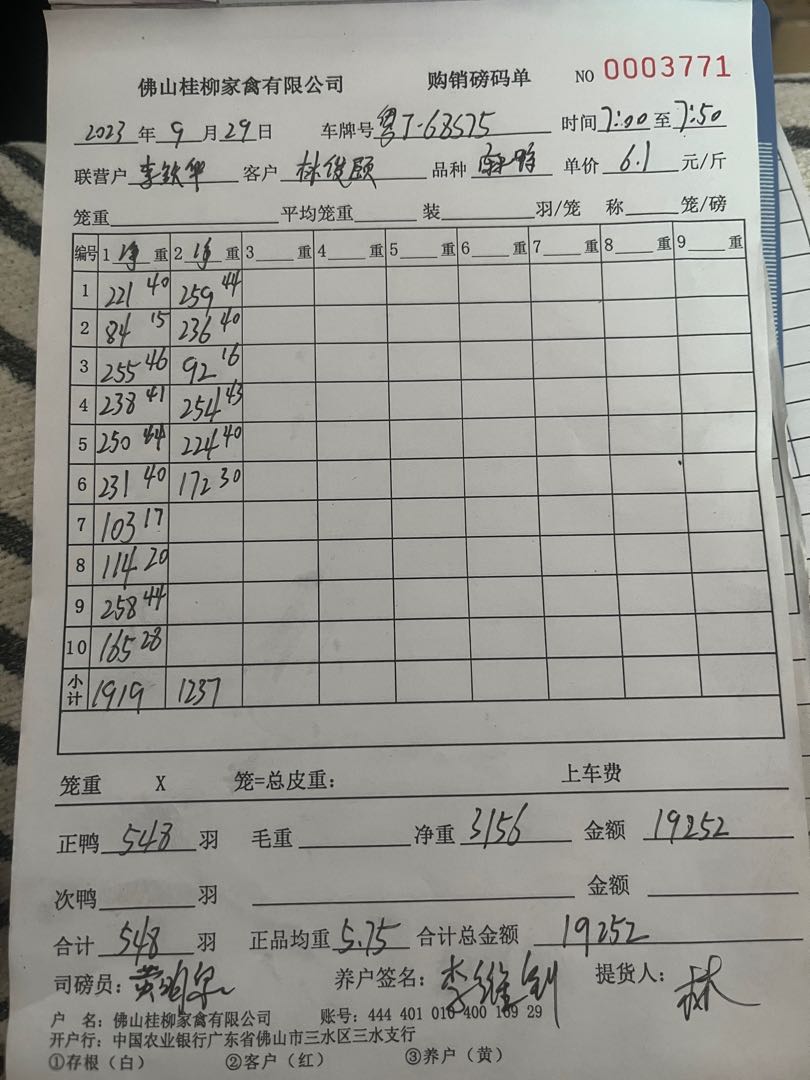 佛山桂柳家禽有限公司 购销磅码单 NO 0003771
2023 年 9 月 29 日 车牌号 粤T-68575 时间 7:00 至 7:50
联营户 李钦华 客户 林俊颐 品种 单价 6.1 元/斤
笼重 平均笼重 装 羽/笼 称 笼/磅
编号 1 净 重 2 净 重 3 重 4 重 5 重 6 重 7 重 8 重 9 重
1 221 40 259 44
2 84 15 236 40
3 255 46 92 16
4 238 41 254 43
5 250 44 224 40
6 231 40 172 30
7 103 17
8 114 20
9 258 44
10 165 28
小计 1919 1237
笼重 X 笼=总皮重: 上车费
正鸭 548 羽 毛重 净重 3156 金额 19252
次鸭 羽 金额
合计 548 羽 正品均重 5.75 合计总金额 19252
司磅员: 养户签名: 李维钊 提货人: 林
户 名: 佛山桂柳家禽有限公司 账号: 444 401 010 400 169 29
开户行: 中国农业银行广东省佛山市三水区三水支行
①存根（白） ②客户（红） ③养户（黄）